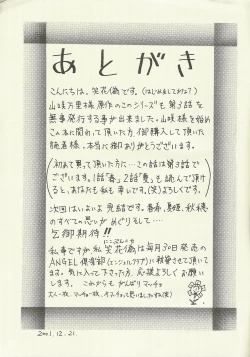 あとがき
こんにちは。笑花偽です。(はじめましてかな?)
山咲万里様原作のこのシリーズも第3話を
無事発行する事が出来ました。山咲様を始め
この本に関わって頂いた方、御購入して頂いた
読者様、本当に御ありがとうございます。
初めて買って頂いた方に…この話は第3話で
ございます。1話「春」2話「夏」も読んで頂け
ると、あなたも私も幸しです。(笑)よろしくです。
次回はいよいよ完結です。春希、夏姫、秋穂、
のすべての思いがめぐりそして…
乞御期待!!
私事ですが、私笑花偽は毎月30発売の
ANGEL倶楽部(エンジェルクラブ)に執筆させて頂いて
ます。気に入って下さった方、応援よろしくお願い
します。これからもがんばりマッチョ
2001.12.21.